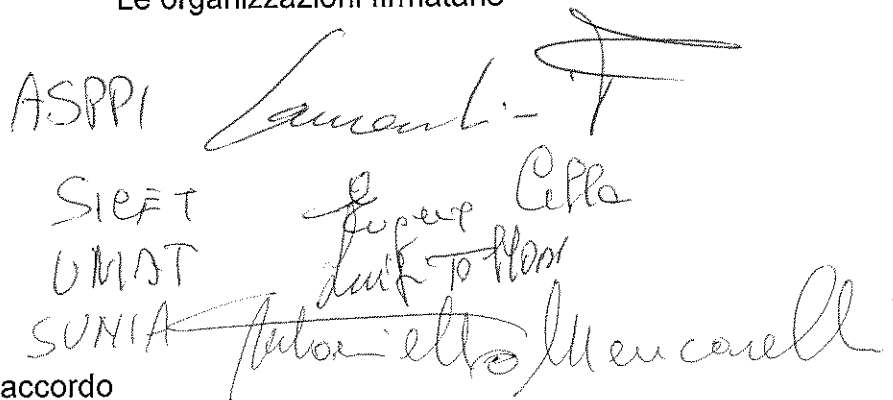 Le organizzazioni firmatarie
ASPPI
SICET Eugenio Cella
UNIAT Luigi
SUNIA Antonietta Mencarelli
accordo